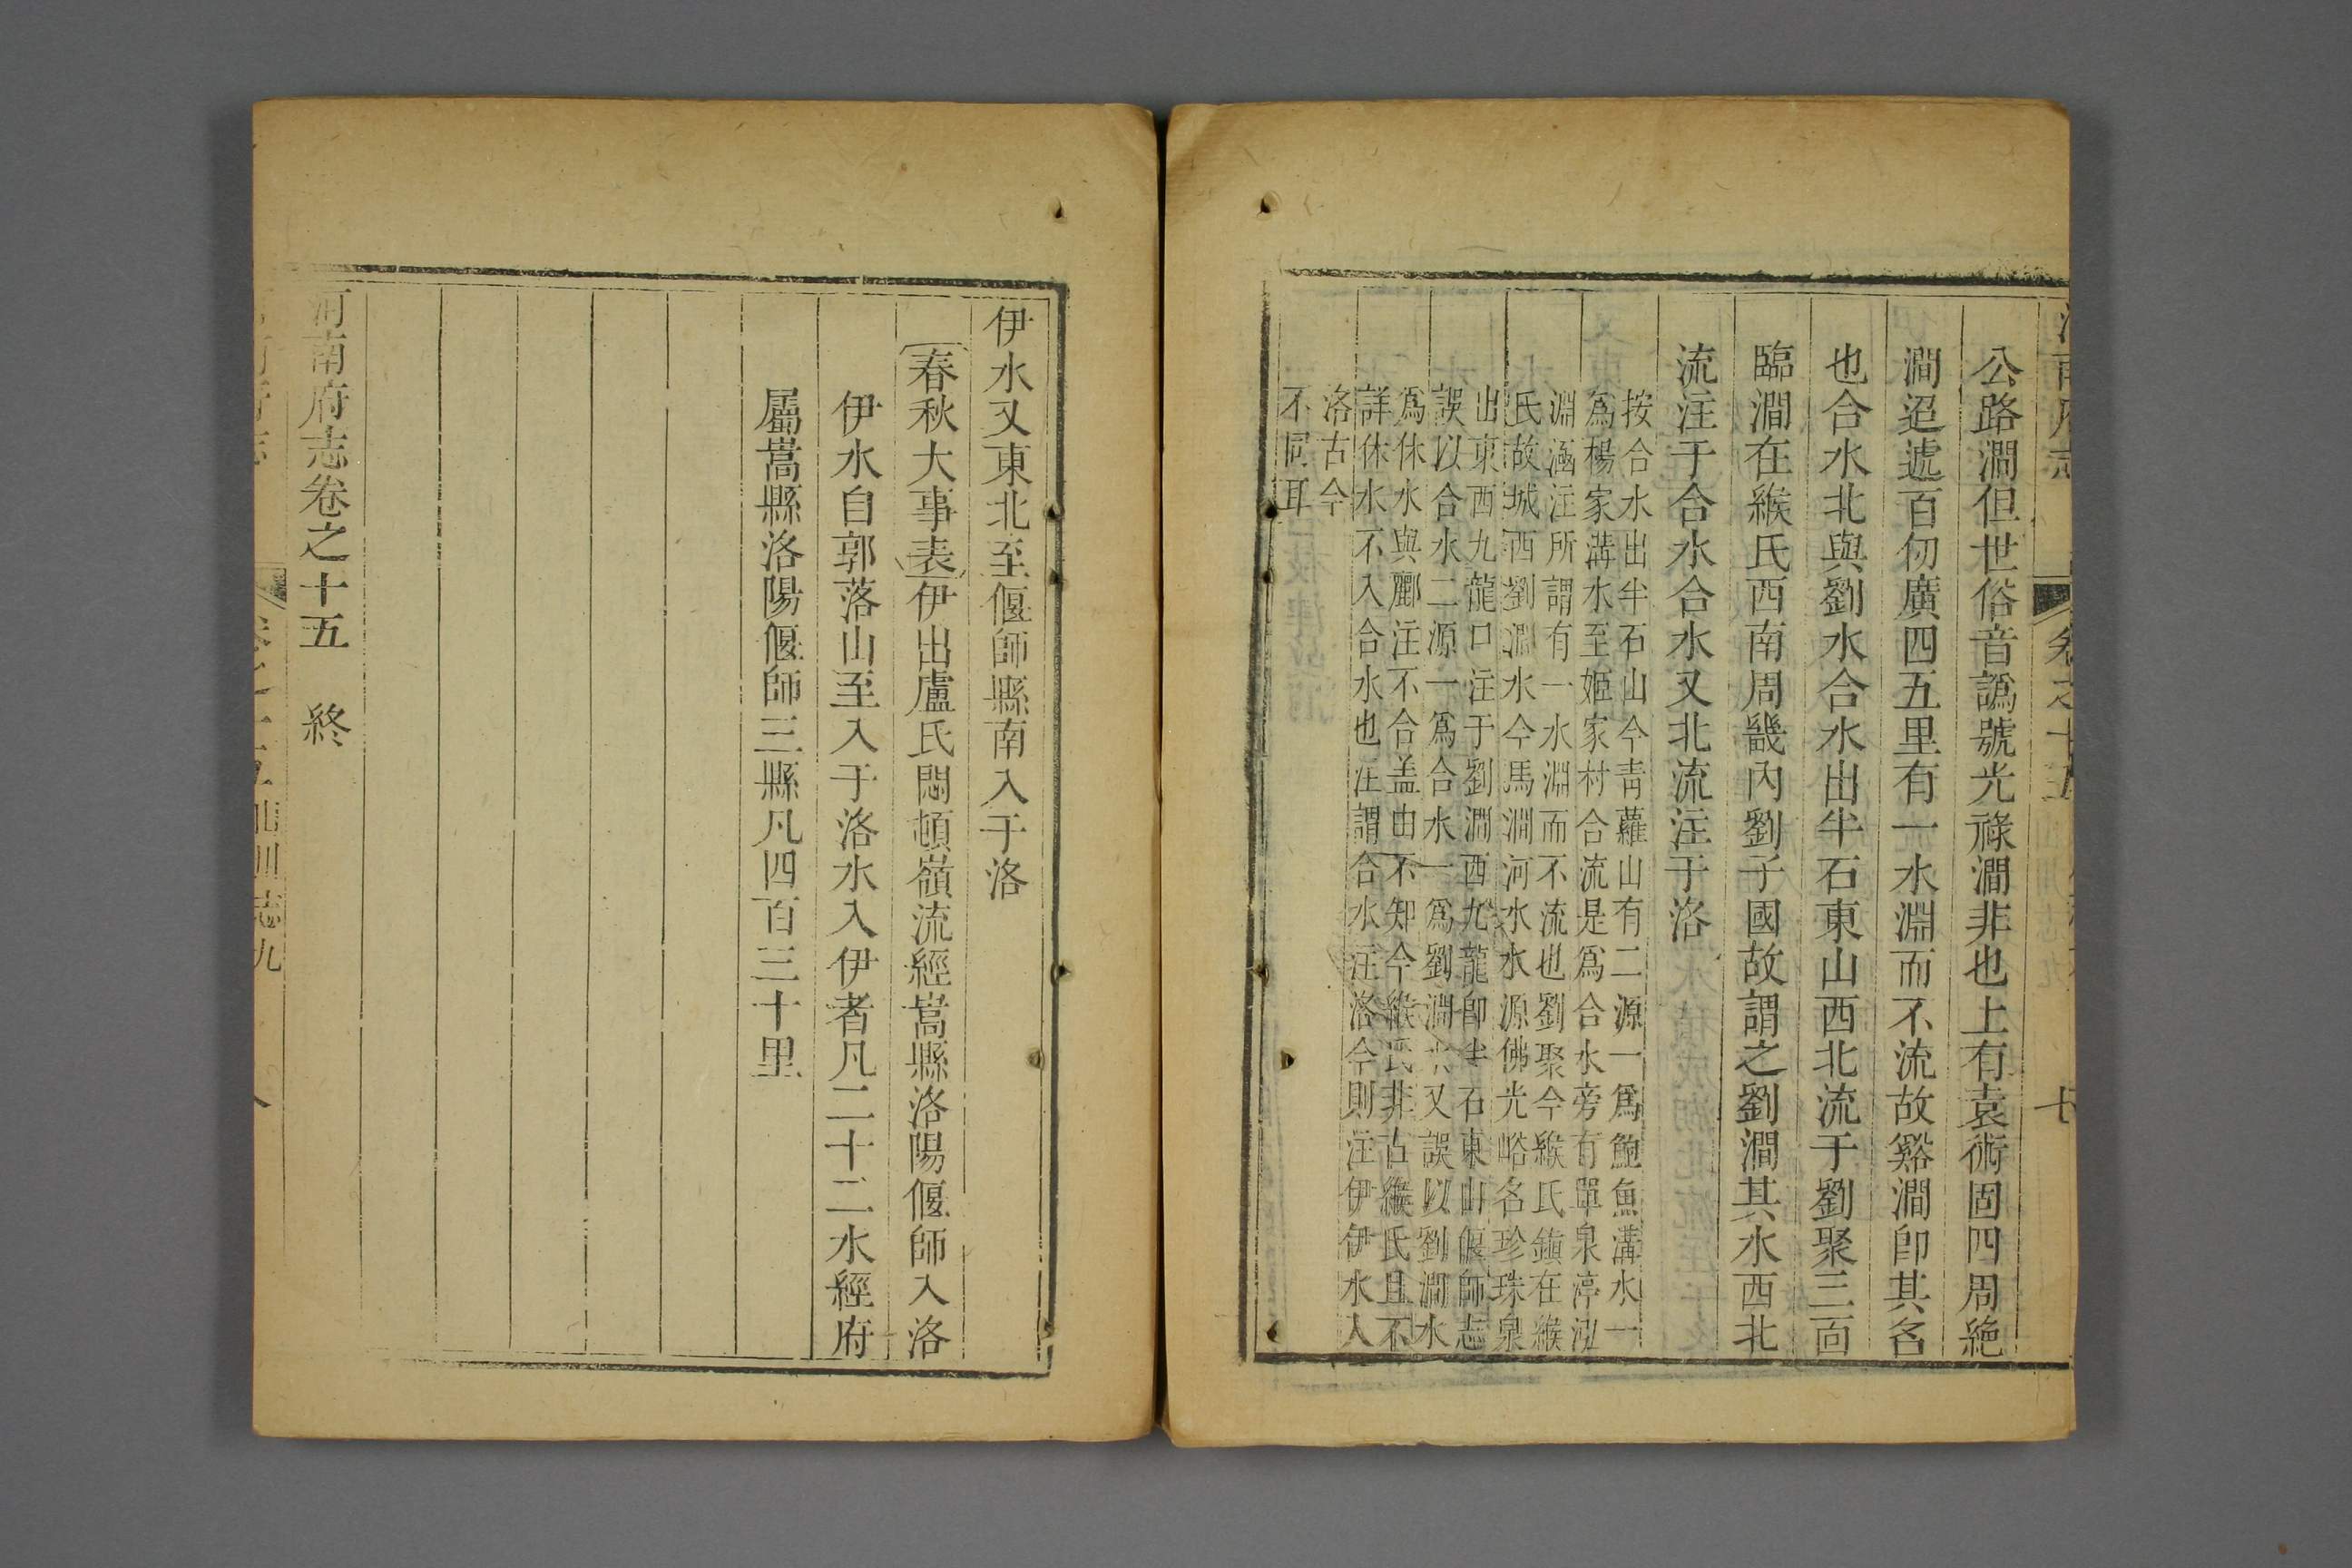 南府志
卷之十五
公路澗但世俗音譌號光祿澗非也上有袁術固四周絕
澗迢遞百仞廣四五里有一水淵而不流故谿澗卽其名
也合水北與劉水合水出半石東山西北流于劉聚三面
臨澗在緱氏西南周畿內劉子國故謂之劉澗其水西北
流注于合水合水又北流注于洛
按合水出半石山今青蘿山有二源一爲鮑魚溝水一
爲楊家溝水至姬家村合流是爲合水旁有單泉渟泓
淵涵注所謂有一水淵而不流也劉聚今緱氏鎮在緱
氏故城西劉澗水今馬澗河水水源佛光峪名珍珠泉
出東西九龍口注于劉澗西九龍卽半石東山偃師志
誤以合水二源一爲合水一爲劉澗水又誤以劉澗水
爲休水與酈注不合盖由不知今緱氏非古緱氏且不
詳休水不入合水也注謂合水注洛今則注伊伊水入
洛古今
不同耳
伊水又東北至偃師縣南入于洛
春秋大事表伊出盧氏悶頓嶺流經嵩縣洛陽偃師入洛
伊水自郭落山至入于洛水入伊者凡二十二水經府
屬嵩縣洛陽偃師三縣凡四百三十里
河南府志卷之十五 終
川志九